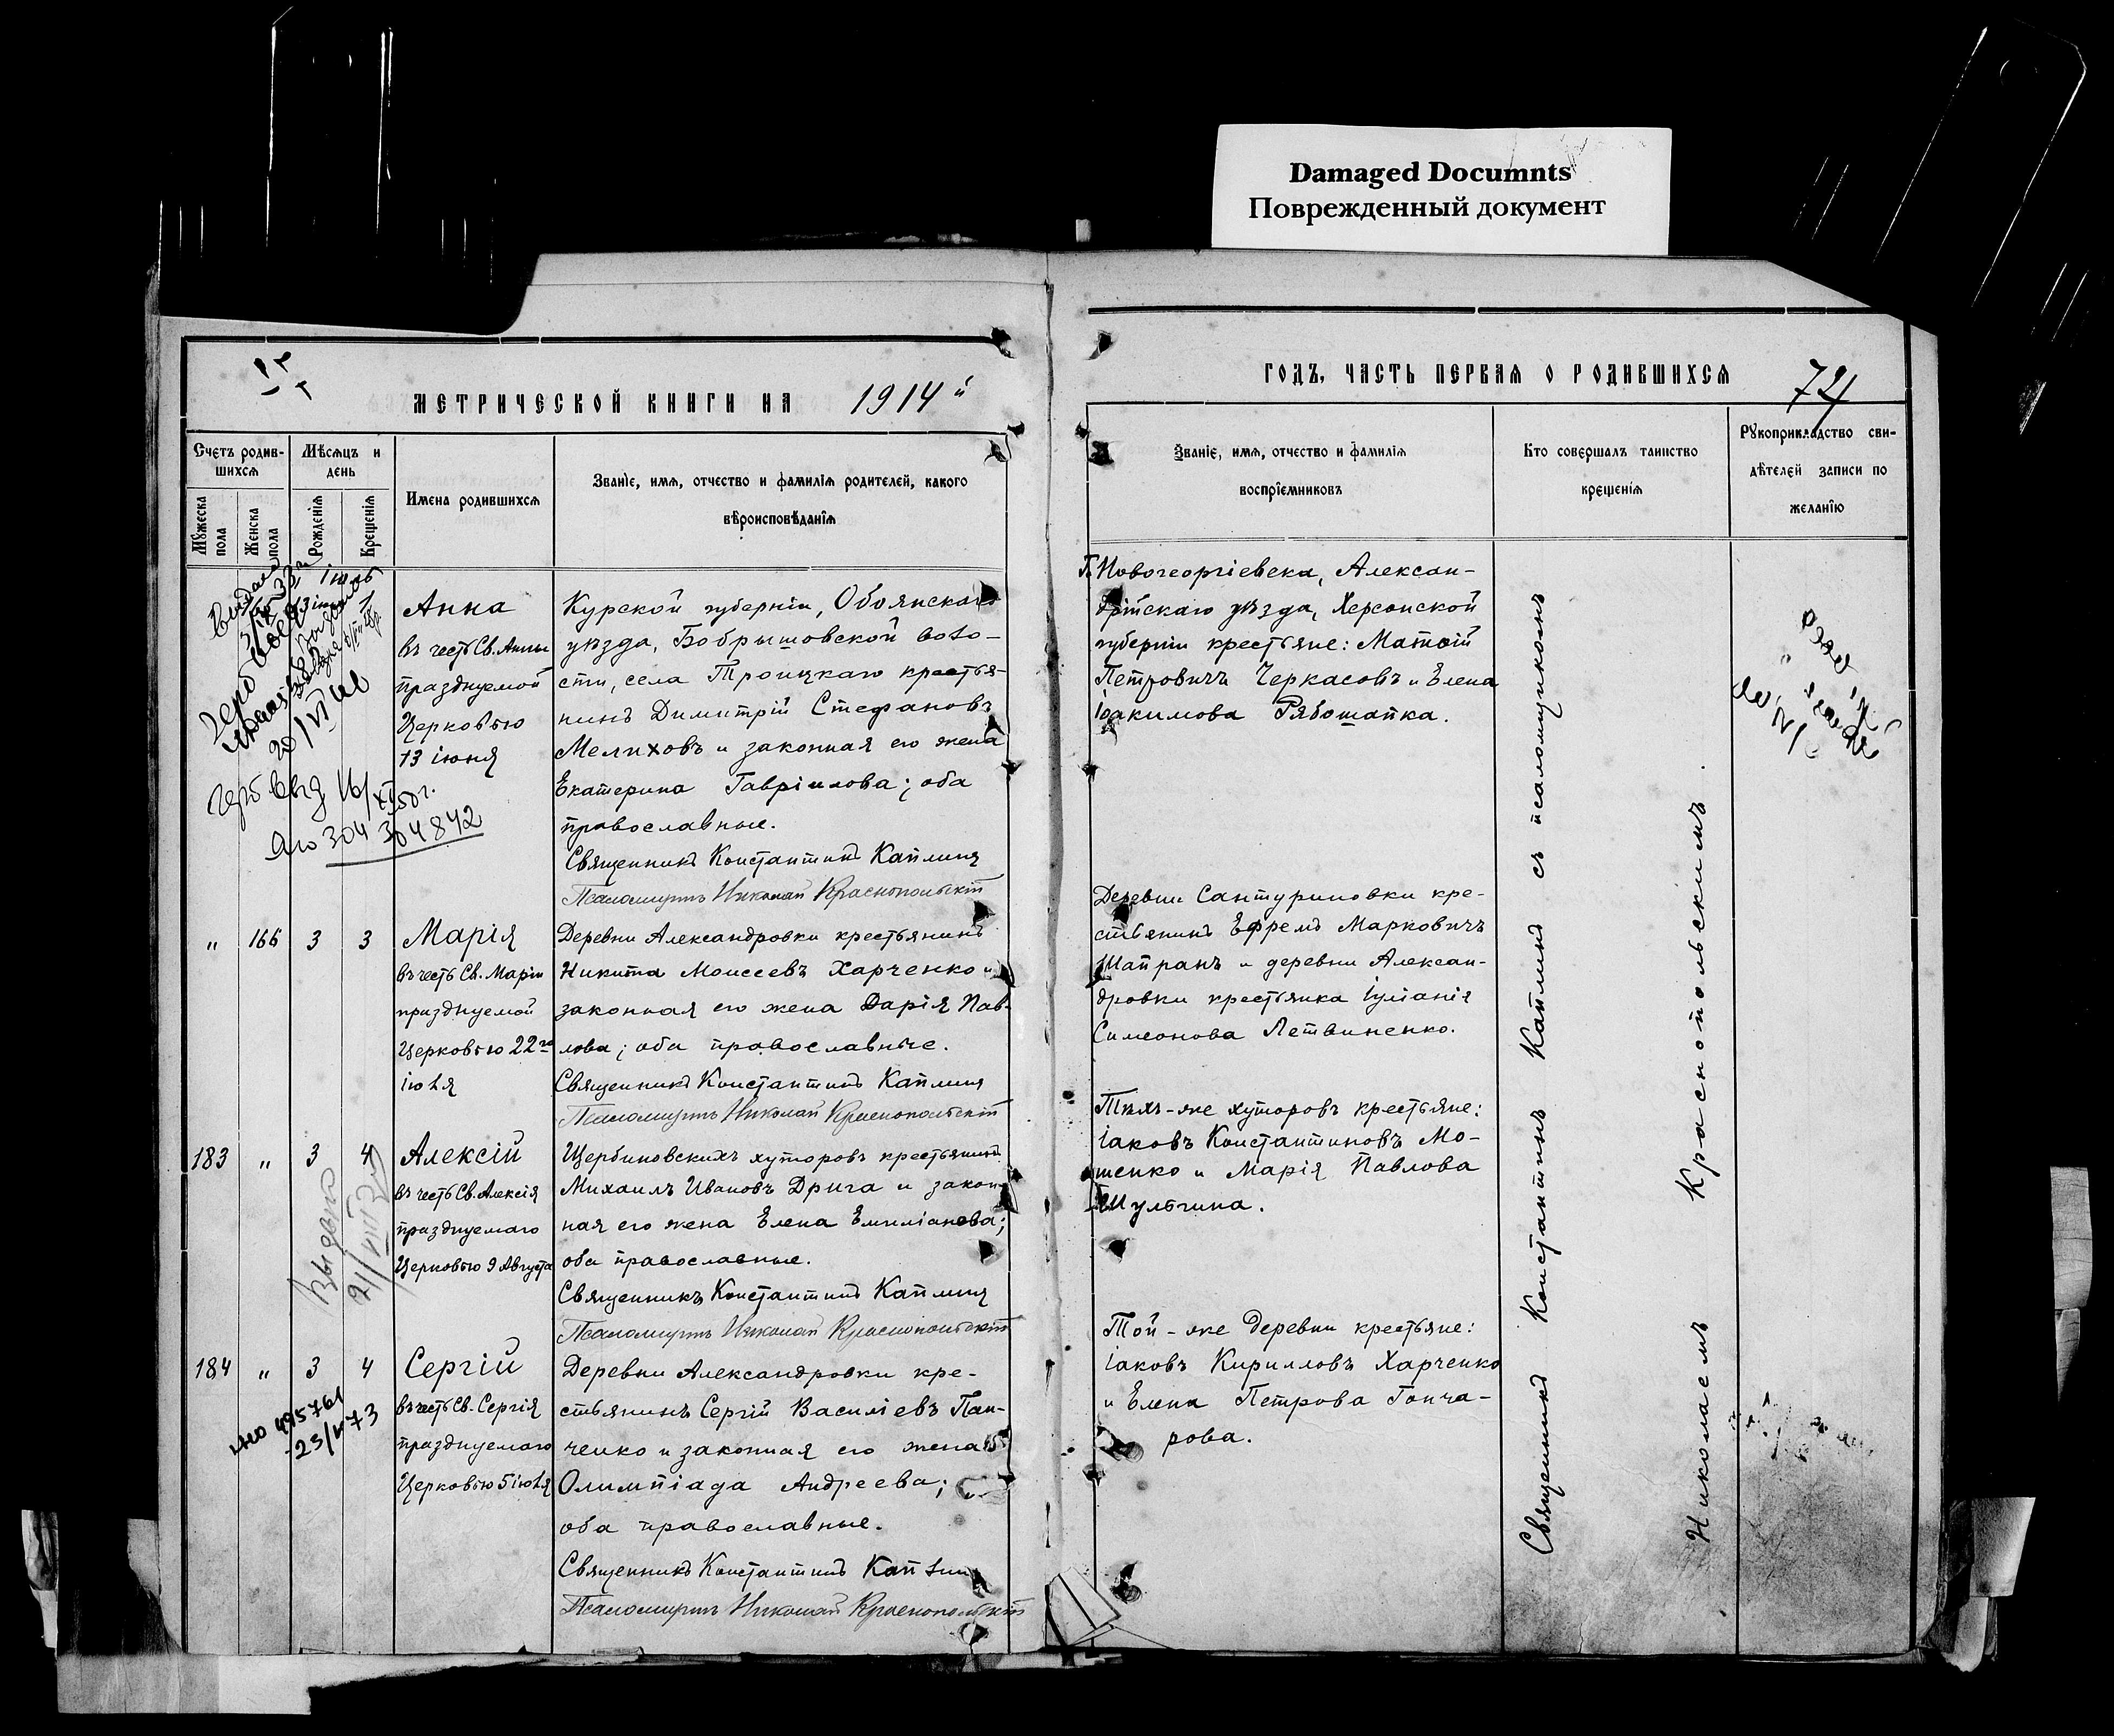 Damaged Documnts
Поврежденный документ
МЕТРИЧЕСКОЙ КНИГИ НА 1914й
Счетъ родив-
шихся
Мѣсяцъ и
день
Мужеска
пола
Женска
пола
Рожденія
Крещенія
Имена родившихся
Званіе, имя, отчество и фамилія родителей, какого
вѣроисповѣданія
Анна
въ честь Св. Анны
празднуемой
Церковью
13 іюня
Курской губерніи, Обоянскаго
уѣзда, Бобрышовской воло-
сти, села Троицкаго крестья-
нинъ Димитрій Стефановъ
Мелиховъ и законная его жена
Екатерина Гавріилова; оба
православные.
Священникъ Константинъ Каплинъ
Псаломщикъ Николай Краснопольскій
304842
" 166 3 3
Марія
въ честь Св. Маріи
празднуемой
Церковью 22го
іюля
Деревни Александровки крестьянинъ
Никита Моисеевъ Харченко и
законная его жена Дарія Пав-
лова; оба православные.
Священникъ Константинъ Каплинъ
Псаломщикъ Николай Краснопольскій
183 " 3 4
Алексій
въ честь Св. Алексія
празднуемаго
Церковью 9 Августа
Щербиновскихъ хуторовъ крестьянинъ
Михаилъ Ивановъ Дрига и закон-
ная его жена Елена Емиліанова;
оба православные.
Священникъ Константинъ Каплинъ
Псаломщикъ Николай Краснопольскій
184 " 3 4
Сергій
въ честь Св. Сергія
празднуемаго
Церковью 5 іюля
Деревни Александровки кре-
стьянинъ Сергій Василіевъ Пан-
ченко и законная его жена
Олимпіада Андреева;
оба православные.
Священникъ Константинъ Каплинъ
Псаломщикъ Николай Краснопольскій
ГОДЪ, ЧАСТЬ ПЕРВАЯ О РОДИВШИХСЯ
Званіе, имя, отчество и фамилія
воспріемниковъ
Кто совершалъ таинство
крещенія
Рукоприкладство сви-
дѣтелей записи по
желанію
Г. Новогеоргіевска, Алексан-
дрійскаго уѣзда, Херсонской
губерніи крестьяне: Матвій
Петровичъ Черкасовъ и Елена
Іоакимова Рябошапка.
Деревни Сантуриновки кре-
стьянинъ Ефремъ Марковичъ
Шапранъ и деревни Алексан-
дровки крестьянка Іуліанія
Симеонова Летвиненко.
Тѣхъ-же хуторовъ крестьяне:
Іаковъ Константиновъ Мо-
шенко и Марія Павлова
Шульгина.
Той-же деревни крестьяне:
Іаковъ Кирилловъ Харченко
и Елена Петрова Гонча-
рова.
Священникъ Константинъ Каплинъ съ псаломщикомъ
Николаемъ Краснопольскимъ.